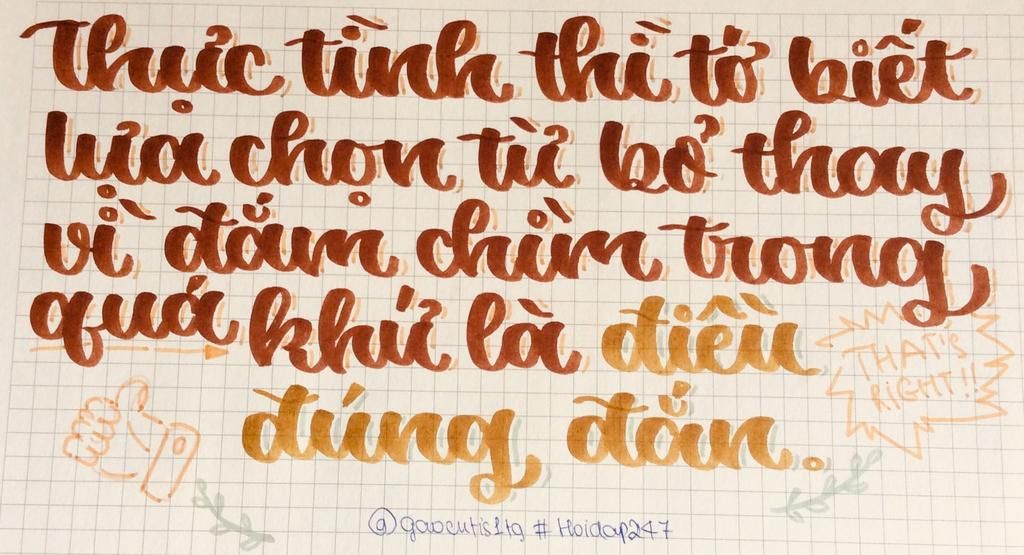 Thực tình thì tớ biết
lựa chọn từ bỏ thay
vì đắm chìm trong
quá khứ là điều
đúng đắn.
THAT'S
RIGHT!!
@gaocutis1tg #Hoidap247